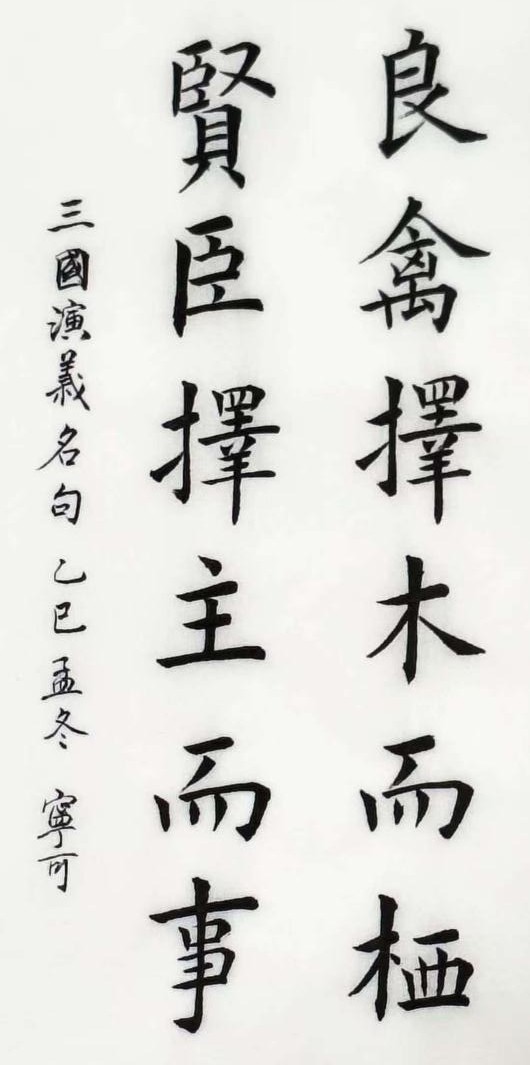 良禽擇木而栖
賢臣擇主而事
三國演義名句 乙巳 孟冬 寧可